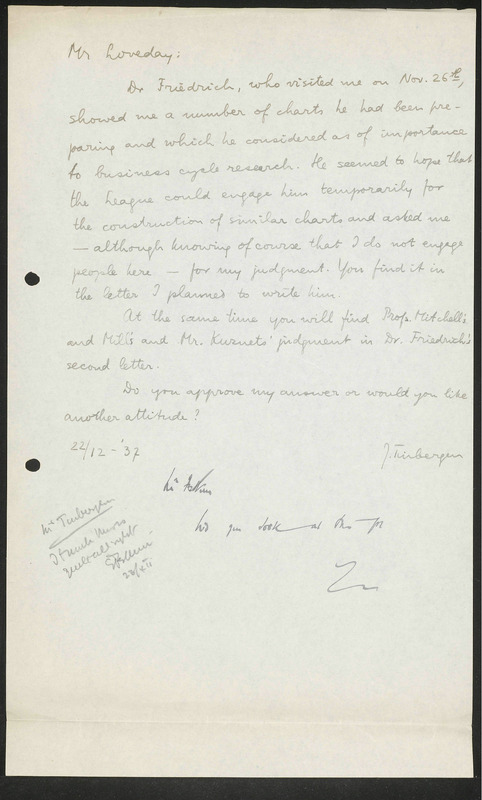 Mr Loveday:
Dr Friedrich, who visited me on Nov. 26th,
showed me a number of charts he had been pre-
paring and which he considered as of importance
to business cycle research. He seemed to hope that
the League could engage him temporarily for
the construction of similar charts and asked me
— although knowing of course that I do not engage
people here — for my judgment. You find it in
the letter I planned to write him.
At the same time you will find Profs. Mitchell's
and Mills and Mr. Kuznets' judgment in Dr. Friedrich's
second letter.
Do you approve my answer or would you like
another attitude?
22/12 - '37
J. Tinbergen
Mr
look at this
Mr Tinbergen
I think